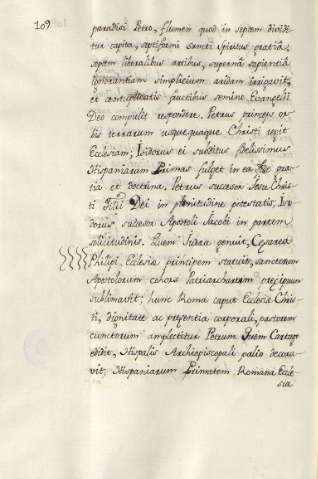 109
paradisi Petro, flumen quod in septem dividi
tur capita, septiformi Sancti Spiritus gratia,
septem liberalibus artibus, superna sapientia
ignorantiam simplicium aridam irrigavit,
et centuplicatis fructibus semine Evangelii
Deo compulit respondere. Petrus princeps or
bis terrarum usquequaque Christi regit
Ecclesiam; Isidorus ei subditus fidelissimus
Hispaniarum Primas fulget in gra
tia et doctrina. Petrus succesor Jesu Chris
ti Filii Dei in plenitudine potestatis, Isi
dorus succesor Apostoli Jacobi in partem
solicitudinis. Quem Siara genuit, Cesarea
Philipi, Ecclesia principem statuit, sanctorum
Apostolorum cohors Patriarcharum precipuum
sublimavit; hunc Roma caput Ecclesia Chris
ti, dignitate ac presentia corporali, pastorem
cunctorum amplectitur Petrum. Quem Cartago
edidit, Hispalis Archiepiscopali palio decora
vit, Hispaniarum Primatem Romana Eccle
sia